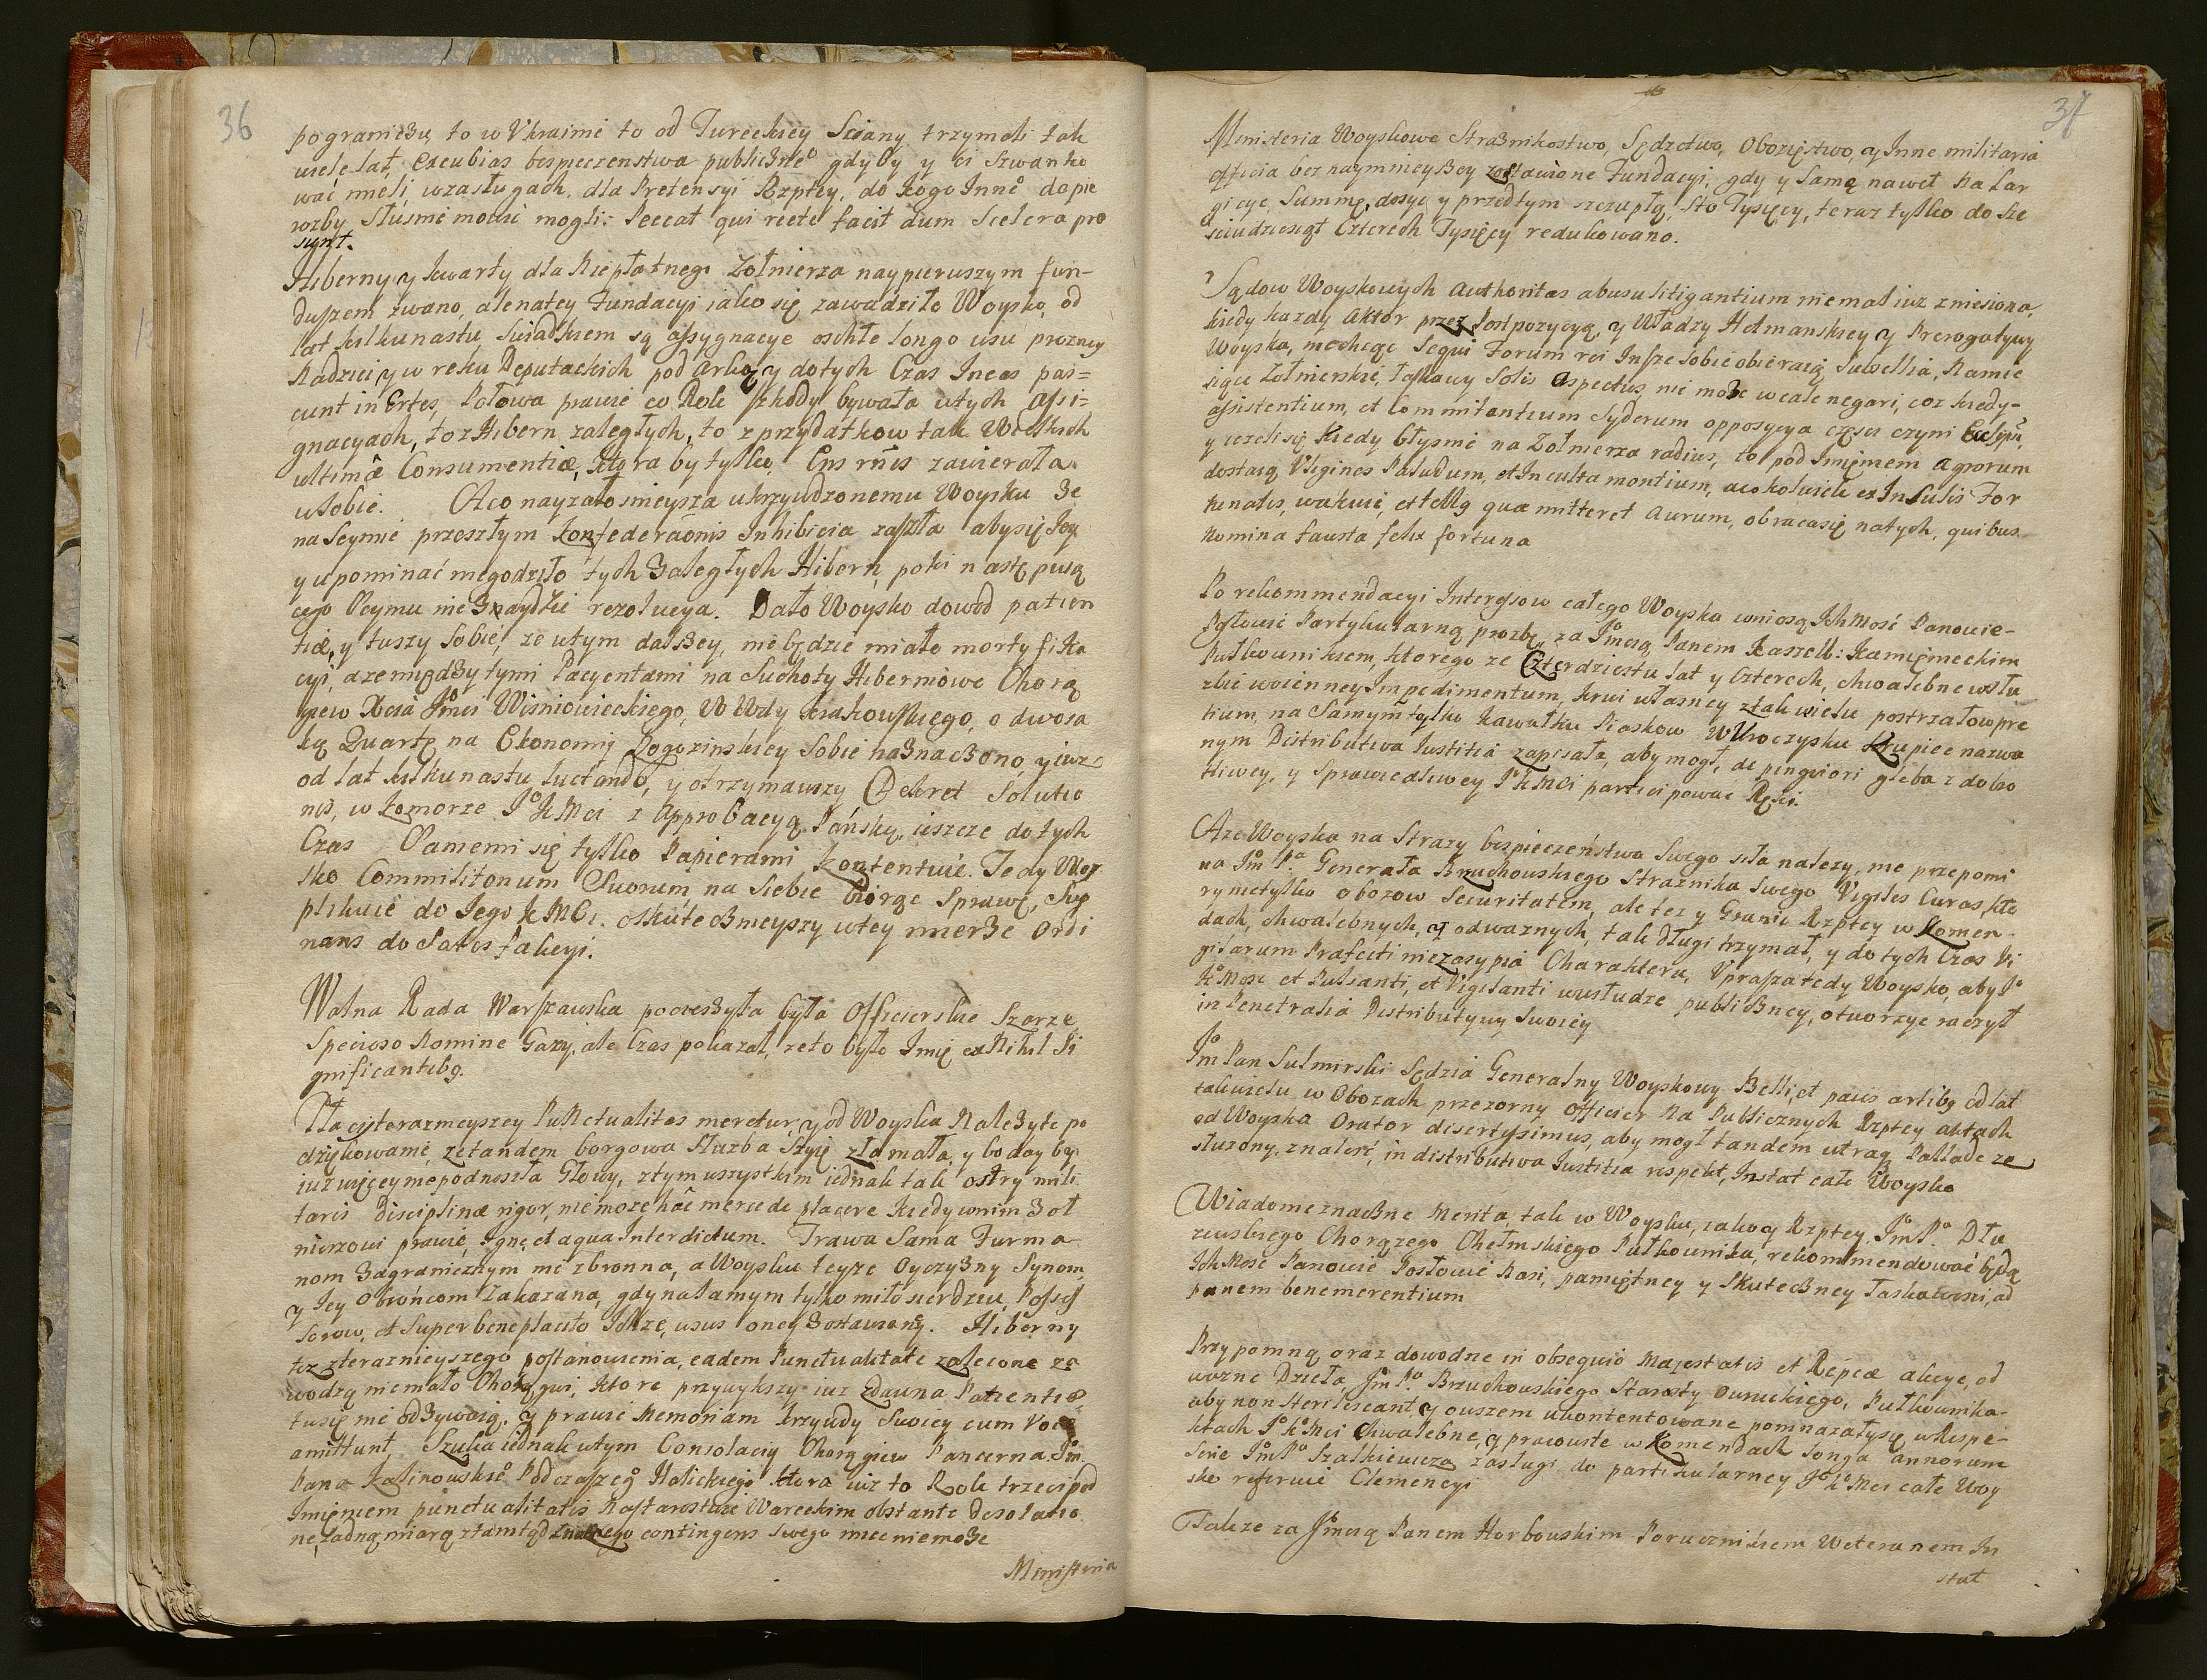 36
pograniczu, to w Vkrainie to od Tureckiey Sciany trzymali tak
wiele lat, excubias bespieczenstwa publicznego gdyby y ci szwanko
wać mieli, w zasługach, dla Pretensyi Rzptey, do kogo Inne dopie
rozby słusnie mowić mogli: Peccat qui recte facit dum Scelera pro
sunt.
Hiberny y kwarty dla Niepłatnego Zołnierza naypierwszym fun-
duszem zwano, ale na tey Fundacyi iako się zawadziło Woysko, od
lat kilkunastu, swiadkiem są assygnacye oschłe longo usu prozney
Nadziei, y w reku Deputackich pod Arką y do tych Czas Incas pas=
cunt inertes, Połowa prawie co Rok szkody bywała w tych assi=
gnacyach, to z Hibern zaległych, to z przydatkow tak Wielkich
ultimæ Consumentiæ, ktora by tylko Ens rñis zawierała
w sobie. A co nayzałosnieysza ukrzywdzonemu Woysku ze
na Seymie przeszłym konfederaõnis Inhibicia zaszła aby się Jey
y upominać niegodziło tych zaległych Hibern, poki nastę puią
cego Seymu nie znaydzie rezolucya. Dało Woysko dowod patien
tiæ, y tuszy sobie, ze w tym dalszey, nie będzie miało mortyfika
cyi, a ze między tymi Pacyentami na Suchoty Hibernowe Chorą
giew Xcia Jmci Wisniowieckiego, W Wdy krakowskiego, o dwora
ką Quartę na Ekonomiy Rogozinskiey sobie naznaczono, y iuz
od lat kilkunastu luctando, y otrzymawszy Dekret Solutio
nis, w komorze Jo K Mci z Approbacyą Pańską, ieszcze do tych
Czas Samemi się tylko Papierami kontentuie. Tedy Woy
sko Commilitonum Suorum na Siebie biorąc Sprawę, Sup
plikuie do Jego K Mci. o skutecznieyszy w tey mierze Ordi
nans do Satisfakcyi.
Walna Rada Warszawska pocieszyła była Officierskie Szarze
Specioso Nomine Gazy, ale Czas pokazał, ze to było Imię ex Nihil Si
gnificantibg.
Płacy terazmieyszey Punctualitas meretur, y od Woyska Nalezyte po
dziękowanie, ze tandem borgowa Słuzba szyię złamała, y boday by
iuz więcey nie podnosiła Głowy, z tym wszystkim iednak tak ostry mili
taris Disciplinæ rigor, nie moze hac mercede placere kiedy winim zoł
nierzowi prawie, Igne et aqua Interdictum. Trawa Sama Furma
nom zagranicznym nie zbronna, a Woysku teyze Oyczyzny Synom,
y Jey Obrońcom Zakazana, gdy na samym tylko miłosierdziu, Posses
sorow, et super beneplacito Ichze, usus oney zostawiony. Hiberny
tez z terazneyszego postanowienia, eadem Punctualitate zalecone za
wodzą niemało Chorągwi, ktore przywykszy iuz zdawna Patientiæ
tu się nie odzywaią, y prawie Memoriam krzywdy Swoiey cum Voce
amittunt. Szuka iednak w tym Consolacyiy Chorągiew Pancerna Jm
Pana Kalinowskiego Podczaszego Halickiego, ktora iuz to Rok trzeci pod
Imieniem punctualitatis Na starostwie Wareckim obstante desolatio
ne, zadną miarą ztamtąd znacznego contingens swego miec niemoze
Ministeria
37
Ministeria Woyskowe Straznikostwo, Sędztwo, Obozięstwo, y Inne militaria
officia bez naymnieyszey zostawione Fundacyi, gdy y Samę nawet Na Lar
gicye Summę, dosyc y przedtym szczupłą, Sto Tysięcy, teraz tylko do Sze
sciudziesiąt Czterech Tysięcy redukowano.
Sądow Woyskowych authoritas abusu litigantium niemal iuz zniesiona,
kiedy kazdy aktor przez Postpozycyą y Władzy Hetmanskiey y Prerogatywy
Woyska, niechcąc Sequi Forum rei In se sobie obieraią Subsellia, Namie
siące Zołnierskie, łaskawy Solis aspectus, nie moze wcale negari, coz kiedy-
assistentium, et Commilitantium Syderum opposycya częsci czyni Eclipsim,
y iezeli się kiedy błysnie na Zołnierza radius, to pod Imięniem agrorum
dostaią Vligines Paludum, et Inculta montium, a cokolwiek ex Insulis For
tunatis, wakuie, et tellg quæ mitteret Aurum, obraca się na tych, quibus
Nomina fausta felix fortuna
Po rekommendacyi Interessow całego Woyska wniosą Ich Mosć Panowie-
Posłowie Partykularną prozbę, za Jmcią Panem Kasztell: Kamięnieckim
Pułkownikiem, ktorego ze Czterdziestu lat y Czterech, chwalebne w słu
zbie woienney Impedimentum, krwi własney z tak wielu postrzałow pre
tium, na Samym tylko kawałku Piaskow w Uroczysku krupiec nazwa
nym Distributiva Iustitia zapisała, aby mogł, de pinguiori gleba z dobro
tliwey, y Sprawiedliwey Jo K Mci participowac Ręki.
A ze Woyska na Strazy bespieczeństwa Swego siła nalezy, nie przepomi
na Jm Pa Generała Bruchowskiego Straznika Swego Vigiles Curas, kto
ry nie tylko obozow Securitatem, ale tez y Granic Rzptey w Komen-
dach, chwalebnych, y odwaznych, tak długi trzymał, y do tych Czas Vi
gilarum Præfecti niezasypia Charakteru, Vprasza tedy Woysko, aby Jo
K Mosc et Pulsanti, et Vigilanti w usłudze publiczney, otworzyc raczył
in Penetralia Distributywy Swoiey
Jm Pan Sulmirski Sędzia Generalny Woyskowy Belli, et pacis artibg od lat
tak wielu w Obozach przezorny Officier Na Publicznych Rzptey aktach
od Woyska Orator disertissimus, aby mogł tandem utraq Pallade za
słuzony, znalesć, in distributiva Iustitia respekt, Instat całe Woysko
Wiadome znaczne Merita, tak w Woysku, iako y Rzptey Jm Pa Dłu
zewskiego Chorązego Chełmskiego Pułkownika, rekommendować będą
Ich Mosc Panowie Posłowie Nasi, pamiętney y Skuteczney łaskawosci, ad
panem benemerentium
Przypomną oraz dowodne in obsequio Majestatis et Reipcæ akcye, od
wazne Dzieła Jm Pa Bruchowskiego Starosty Owruckiego, Pułkownika
aby non Sterilescant y owszem ukontentowane pomnazały się, w Respe-
ktach Jo K Mci chwalebne y pracowite w Komendach longa annorum
Serie Jm Pa Szatkiewicza zasługi do partikularney Jo K Mci całe Woy
sko referuie Clemencyi
Takze za Jmcią Panem Horbowskim Porucznikiem Weteranem In
stat